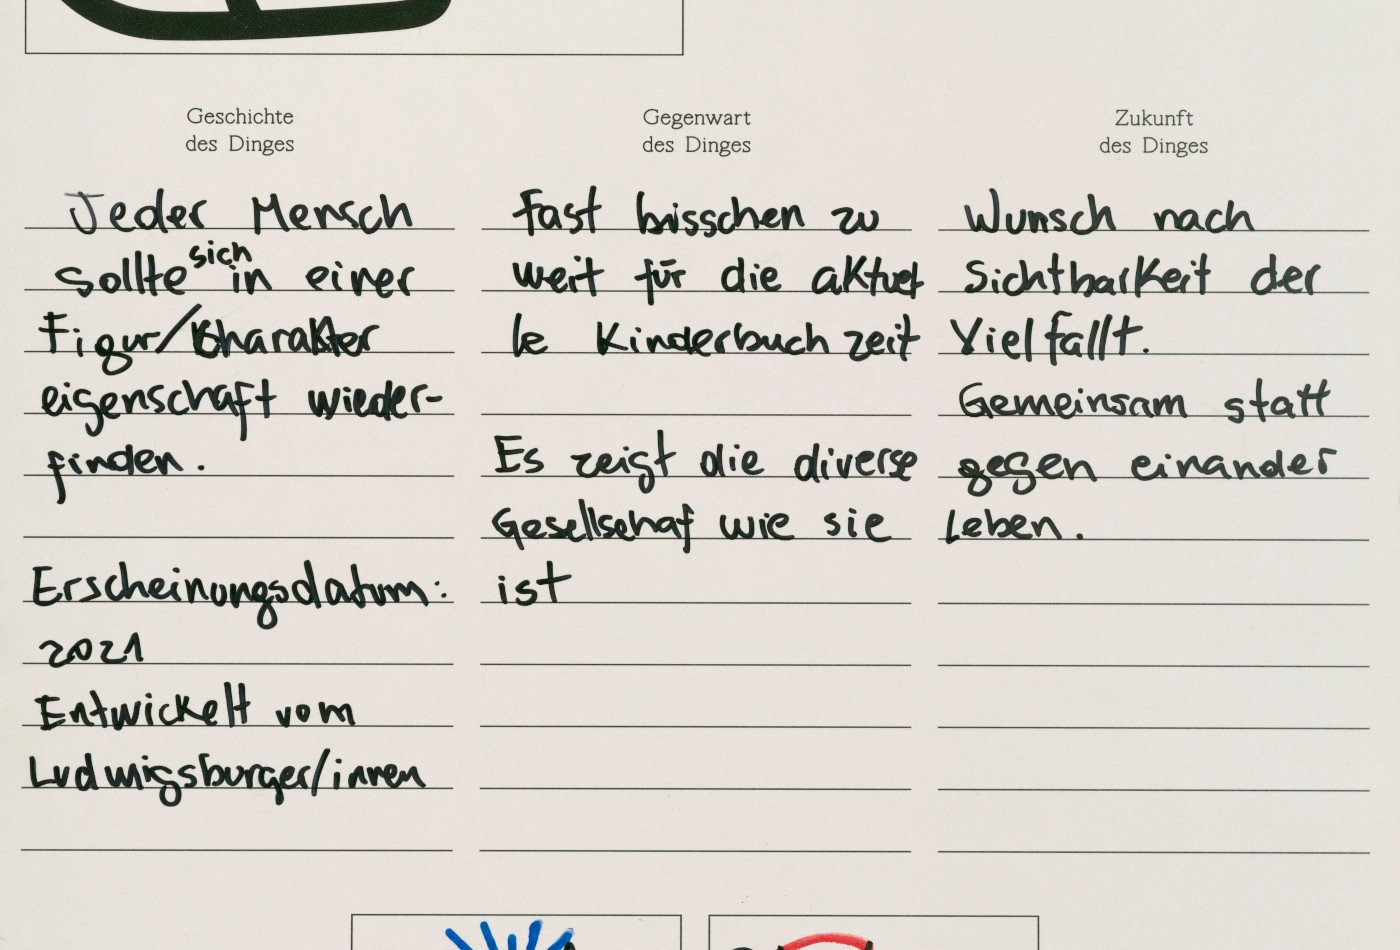 Geschichte
des Dinges
Jeder Mensch
sollte sich in einer
Figur/Charakter
eigenschaft wieder-
finden.
Erscheinungsdatum:
2021
Entwickelt vom
Ludwigsburger/innen
Gegenwart
des Dinges
Fast bisschen zu
weit für die aktuel
le Kinderbuch zeit
Es zeigt die diverse
Gesellschaf wie sie
ist
Zukunft
des Dinges
Wunsch nach
Sichtbarkeit der
Vielfallt.
Gemeinsam statt
gegen einander
Leben.